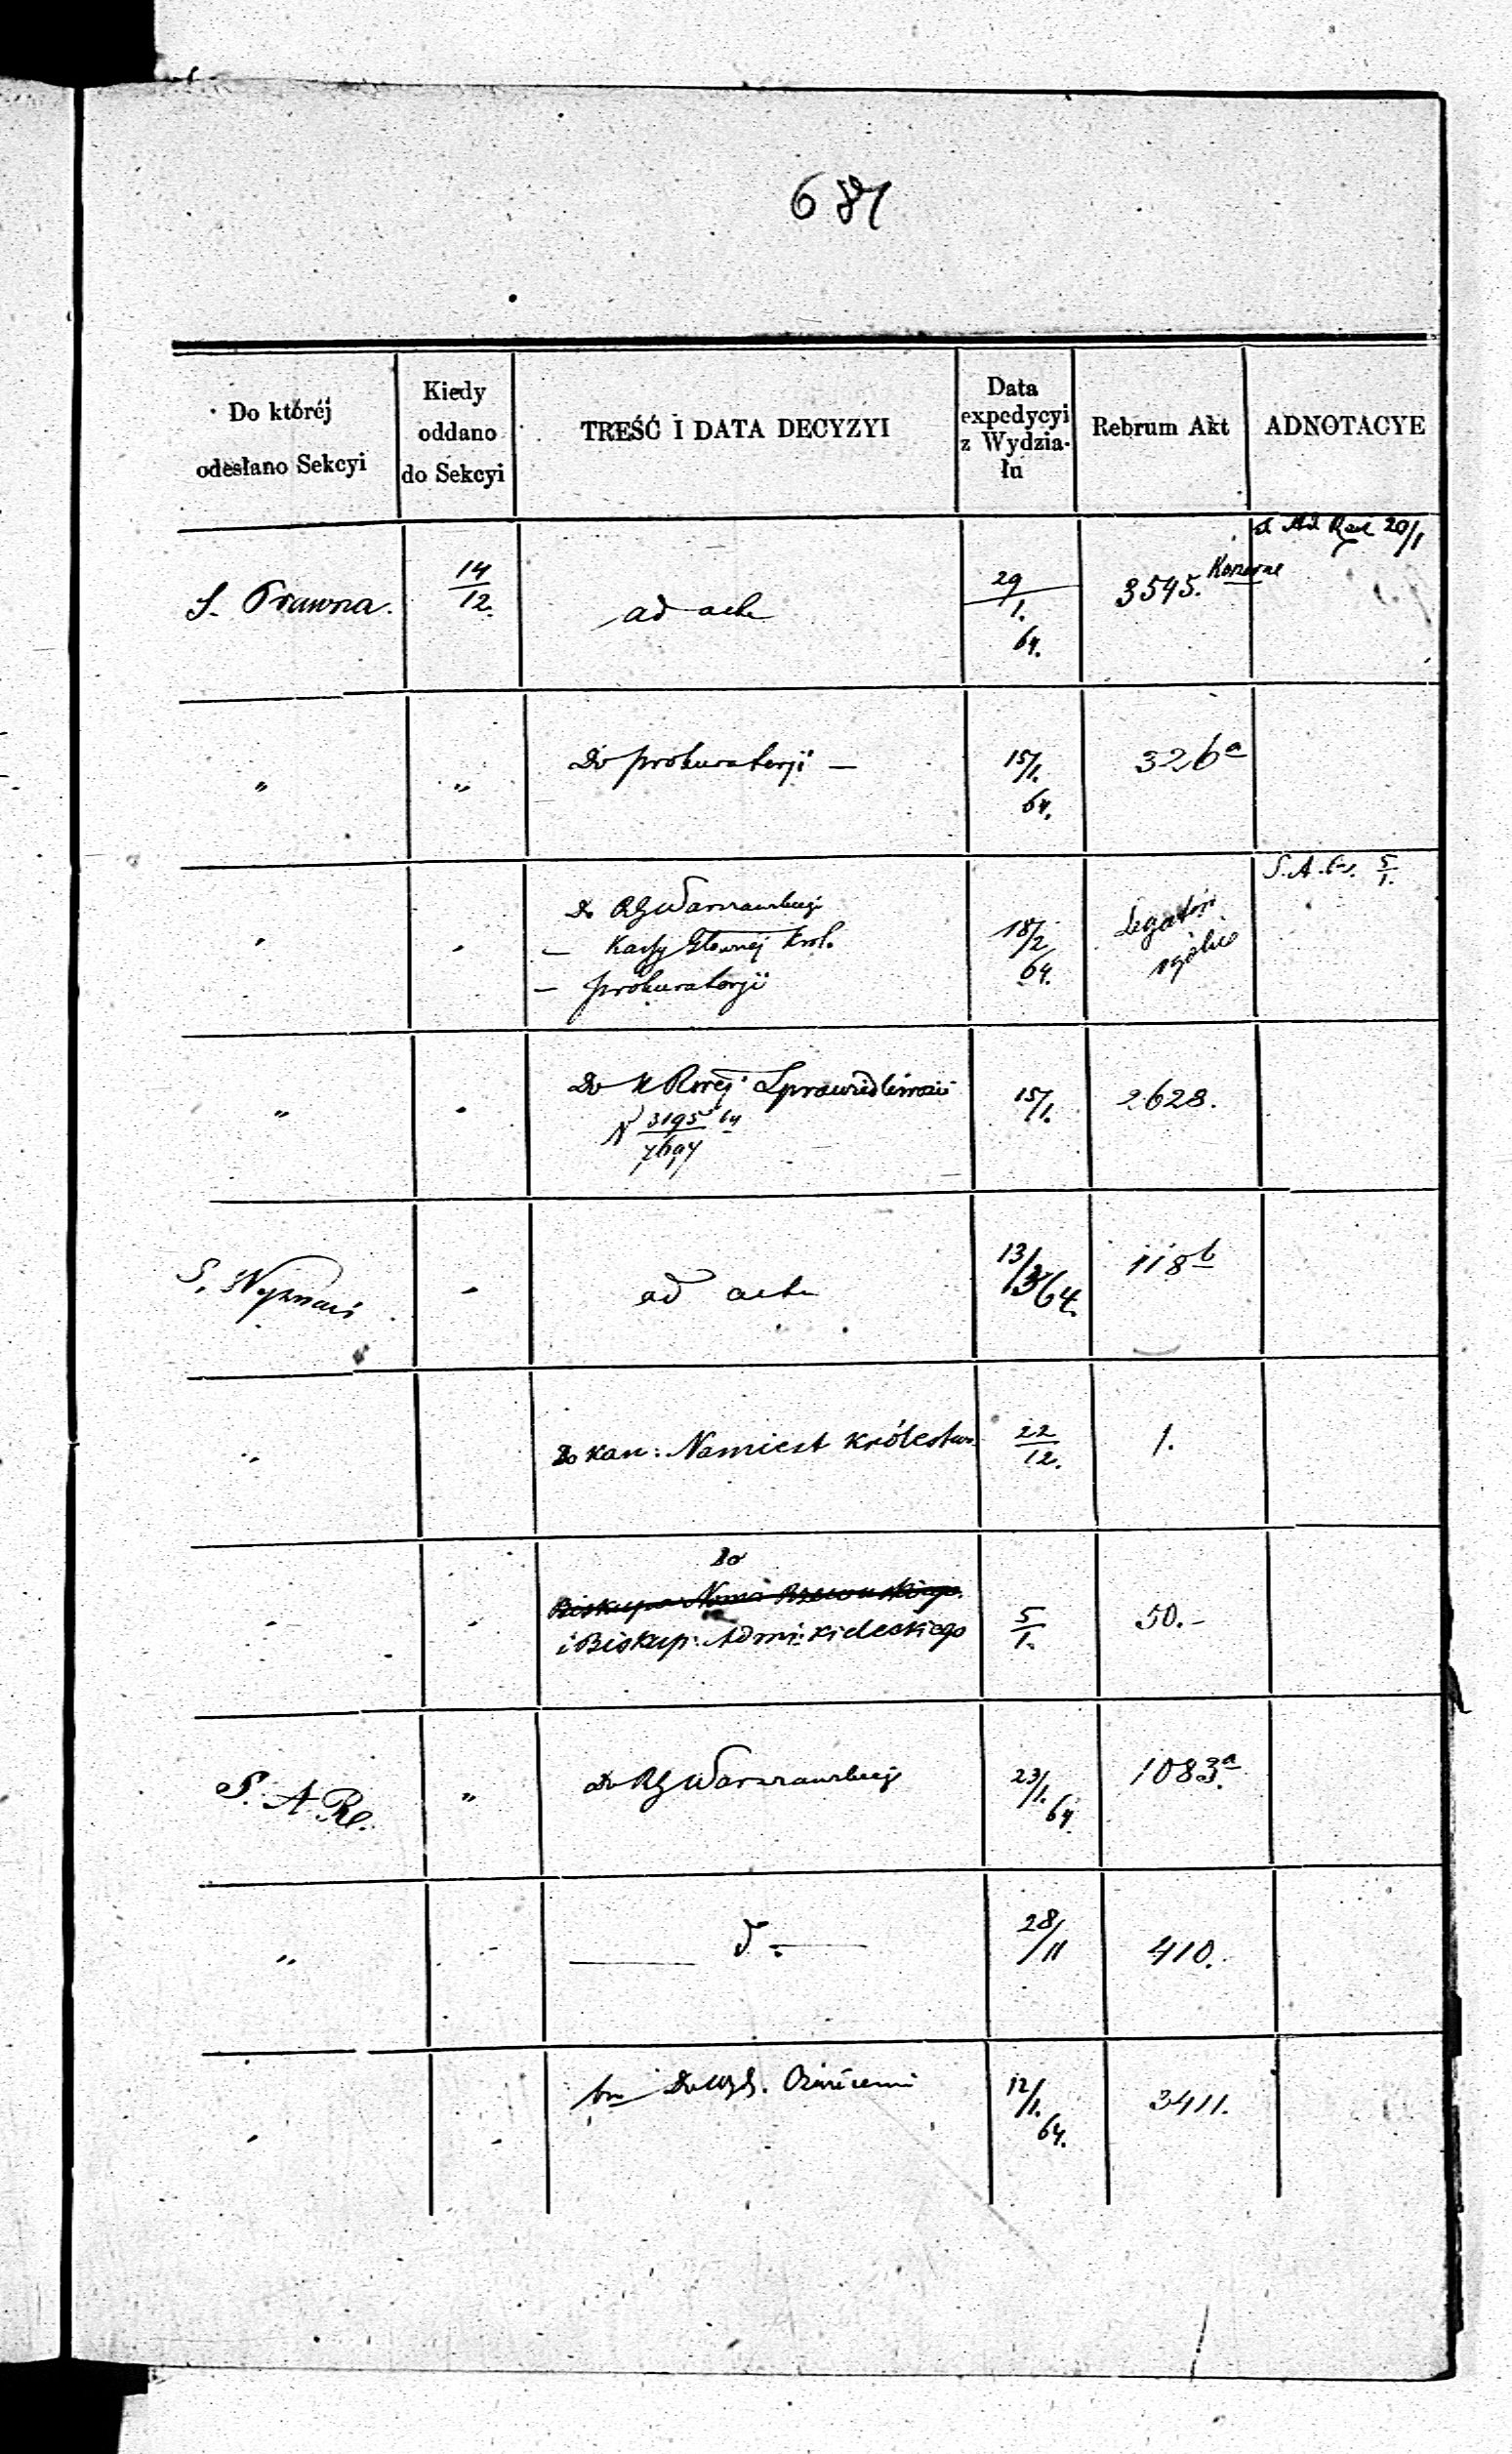 687
Do któréj odesłano Sekcyi
Kiedy oddano do Sekcyi
TREŚĆ I DATA DECYZYI
Data expedycyi z Wydzia-łu
Rebrum Akt
ADNOTACYE
S. Prawna. 14/12. ad acta 29/1. 64. 3545. 20/1
" " Do prokuratorji — 15/1. 64. 326a
S. A. 5/1.
Do RG Warszawskiej
— Kassy Głównej Król. 18/2 64.
— prokuratorji
" Do K Rwej Sprawiedliwości 15/1. 2628.
N 3195/7697 64
S. Wyznań ad acta 13/3 64. 118b
Do Kan: Namiest Królestwa 22/12. 1.
Do
Biskupa
i Biskup: Admi: Kieleckiego 5/1. 50.-
S. A. Re. " Do RG Warszawskiej 23/1. 64 1083a
" — d° — 28/11 410.
Do Wyd. Oświecenia 12/1. 64. 3411.